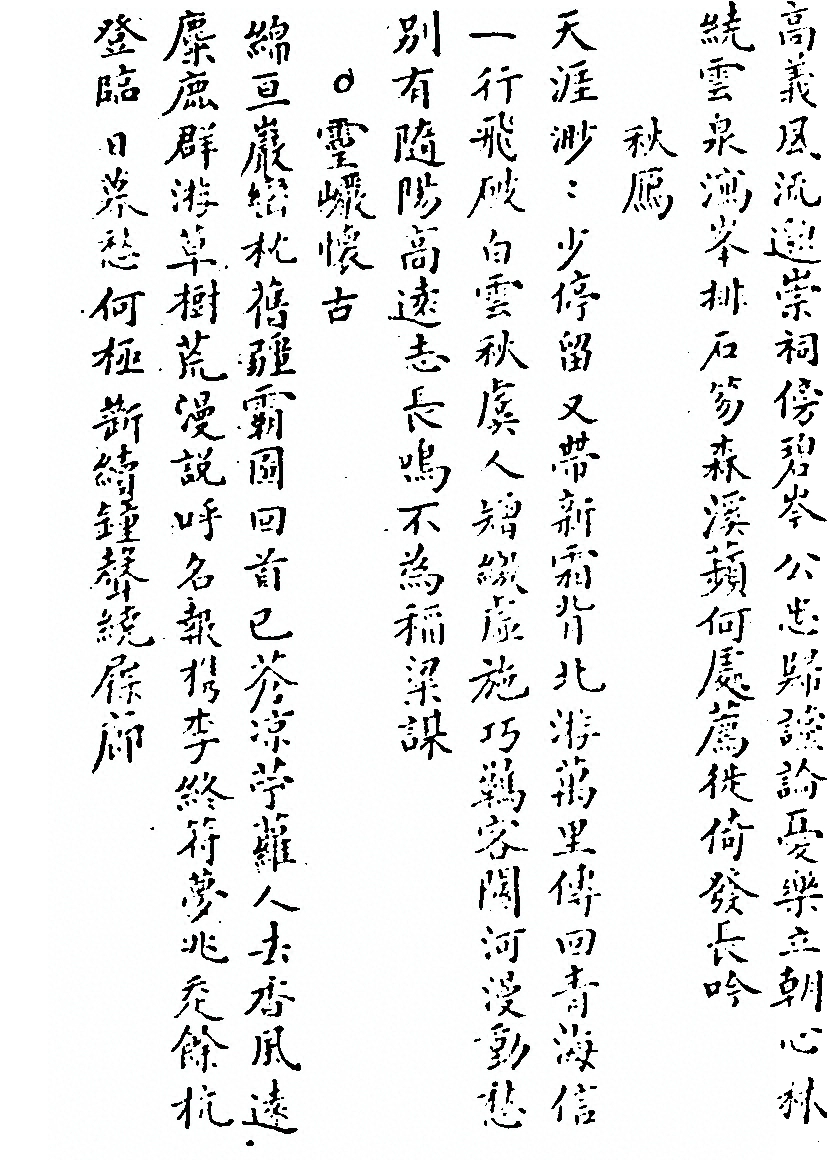 高義風流邈崇祠傍碧岑公忠歸讜論憂樂立朝心林
繞雲泉瀉岑排石笏森溪蘋何處薦徙倚發長吟
秋鴈
天涯渺〻少停留又帶新霜背北游萬里傳回青海信
一行飛破白雲秋虞人矰繳虛施巧羈客關河漫動愁
別有隨陽高遠志長鳴不為稻粱謀
靈巗懷古
綿亘巖巒枕舊疆霸圖回首已芥凉苧蘿人去香風遠
麋鹿群游草樹荒漫說呼名報檇李終符夢兆兆餘杭
登臨日暮愁何極斷續鐘聲繞屧廊